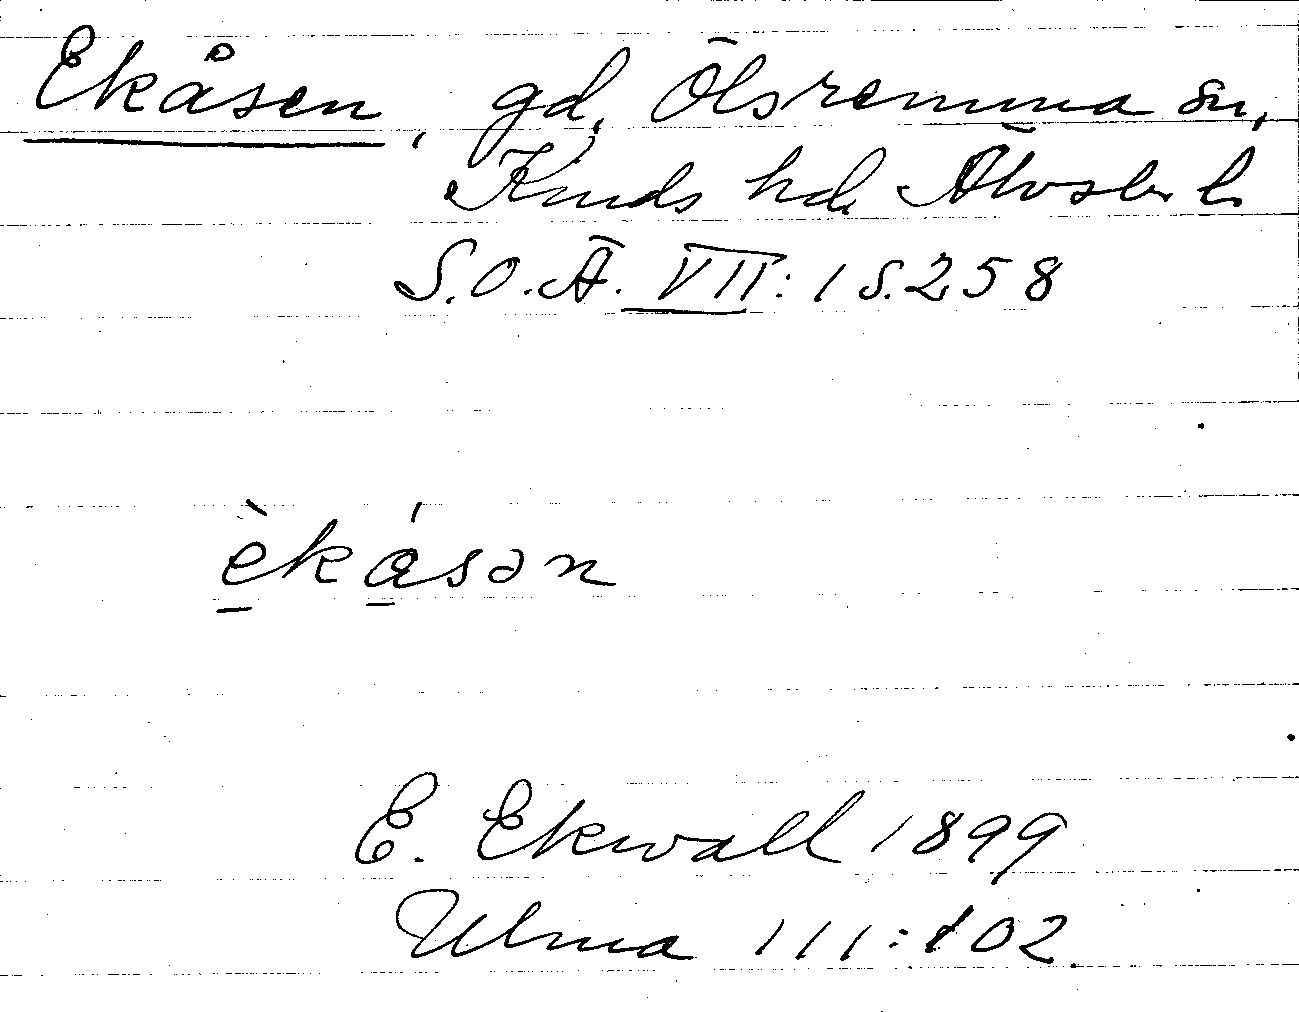 Ekåsen, gd, Ölsremma sn,
Kinds hd. Älvsb. l.
S.O.Ä. VII:1 s.258
èkásən
E. Ekwall 1899
Ulma 111:102.